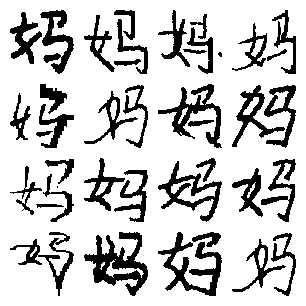 妈妈妈妈
妈妈妈妈
妈妈妈妈
妈妈妈妈